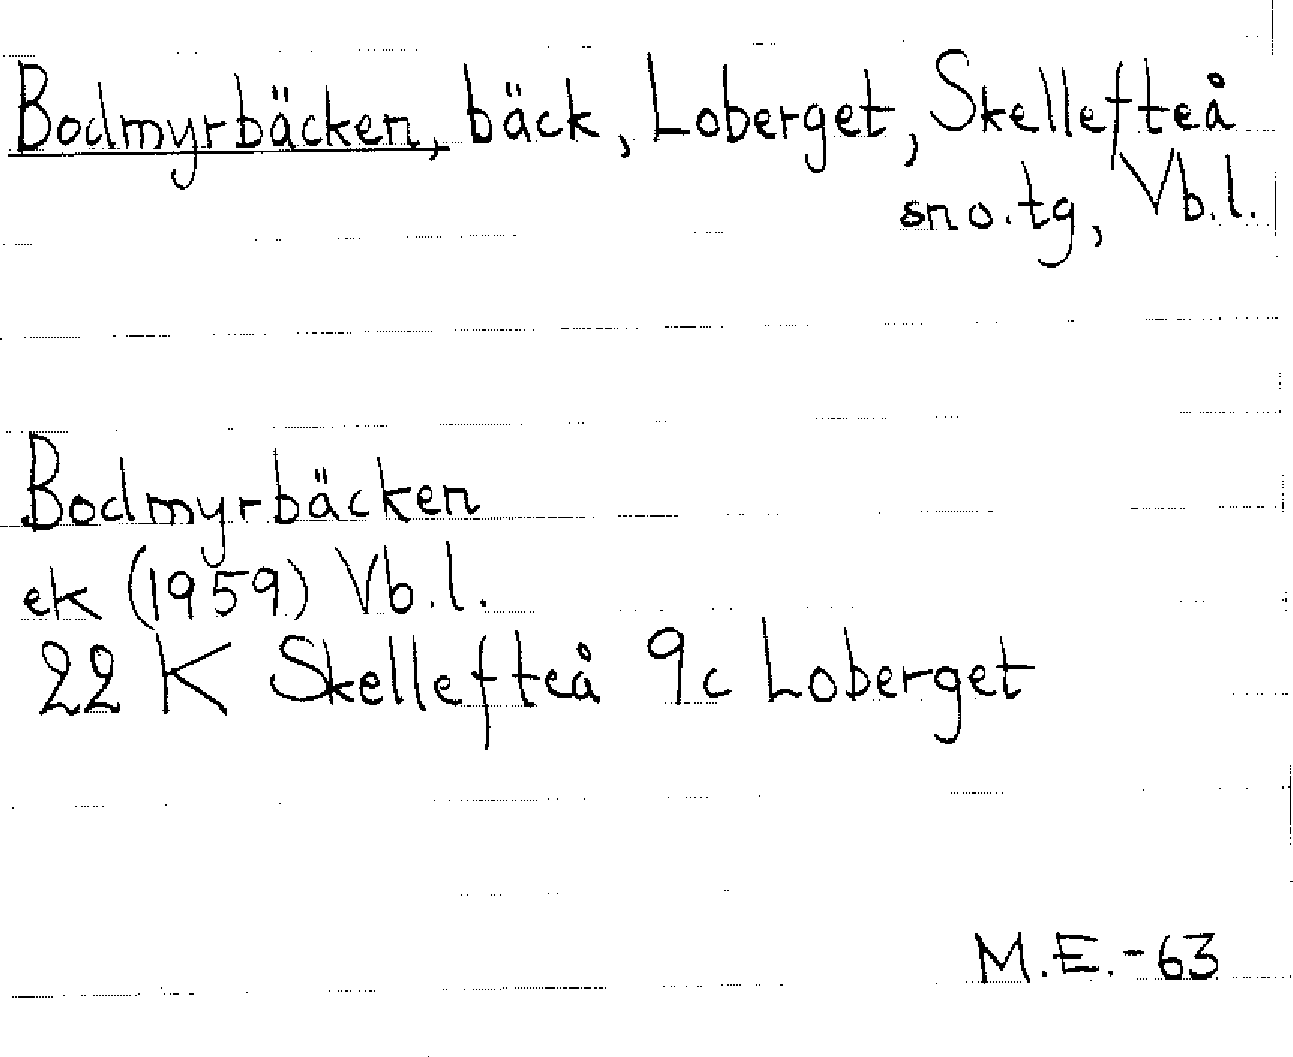 Bodmyrbäcken, bäck, Loberget, Skellefteå
sn o. tg, Vb.l.
Bodmyrbäcken
ek (1959) Vb.l.
22 K Skellefteå 9c Loberget
M.E.-63